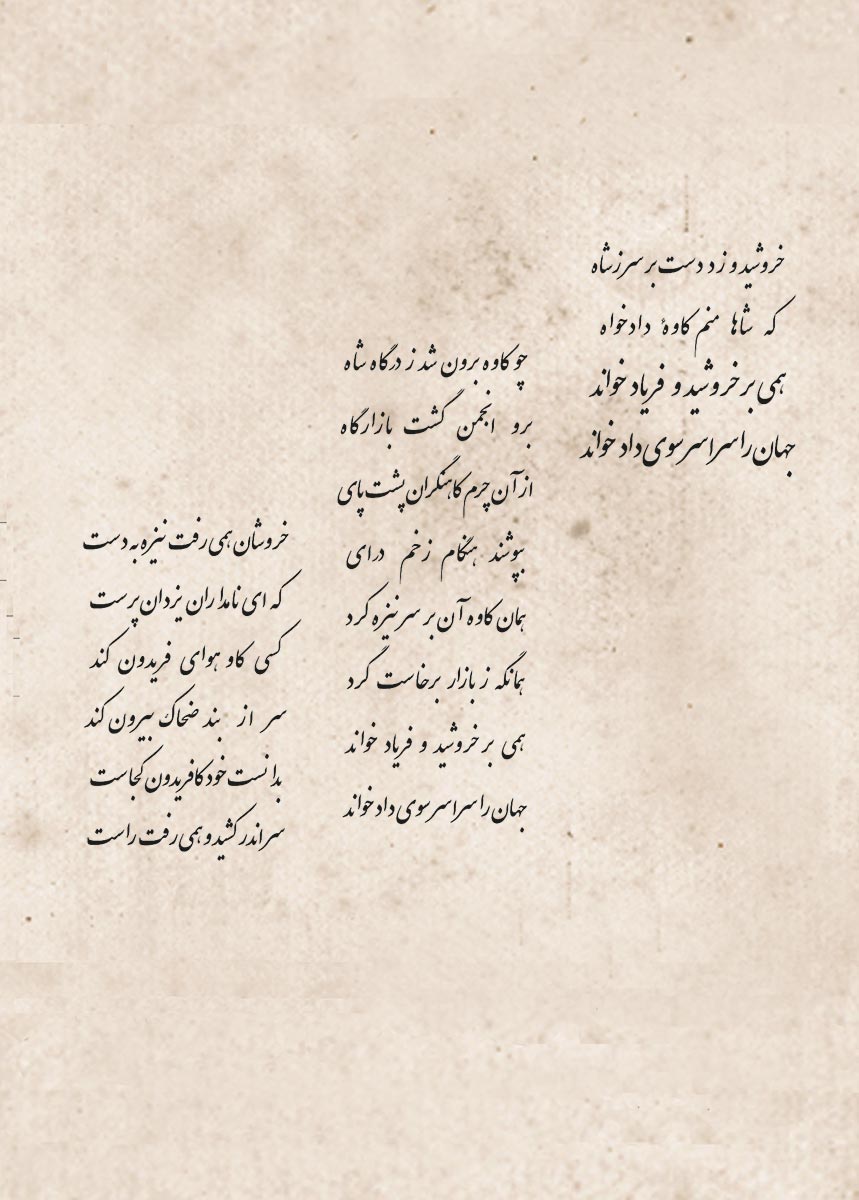 خروشید و زد دست بر سر زشاه
که شاها منم کاوهٔ دادخواه
همی بر خروشید و فریاد خواند
جهان را سراسر سوی داد خواند
چو کاوه برون شد ز درگاه شاه
برو انجمن گشت بازارگاه
از آن چرم کاهنگران پشت پای
بپوشند هنگام زخم درای
همان کاوه آن بر سر نیزه کرد
همانگه ز بازار برخاست گرد
همی بر خروشید و فریاد خواند
جهان را سراسر سوی داد خواند
خروشان همی رفت نیزه به دست
که ای نامداران یزدان پرست
کسی کاو هوای فریدون کند
سر از بند ضحاک بیرون کند
بدانست خود کافریدون کجاست
سراندر کشید و همی رفت راست